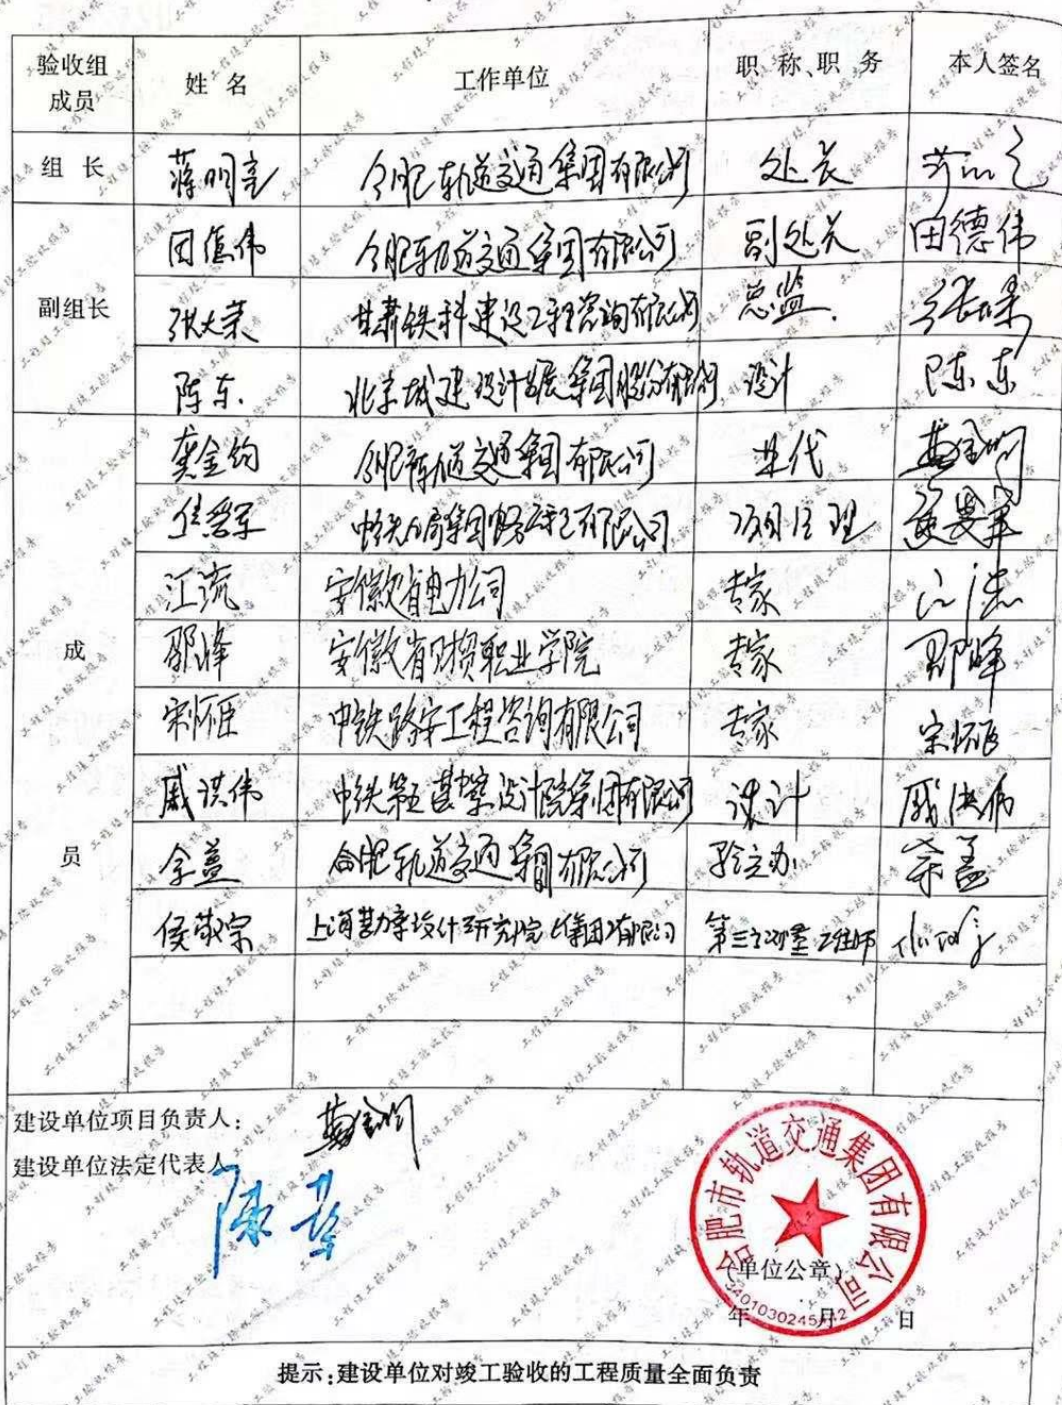 验收组成员 姓名 工作单位 职称、职务 本人签名
组长 蒋明亮 合肥轨道交通集团有限公司 处长
副组长
田德伟 合肥轨道交通集团有限公司 副处长 田德伟
张大荣 甘肃铁科建设工程咨询有限公司 总监.
陈东. 北京城建设计发展集团股份有限公司 设计 陈东
成员
龚金钧 合肥轨道交通集团有限公司 业代
中铁 局集团 有限公司 项目经理
江流 安徽省电力公司 专家 江流
邵峰 安徽省财贸职业学院 专家 邵峰
宋怀臣 中铁路安工程咨询有限公司 专家 宋怀臣
戚洪伟 中铁第五勘察设计院集团有限公司 设计 戚洪伟
余益 合肥轨道交通集团有限公司
侯敬宗 上海勘察设计研究院(集团)有限公司 第三方测量工程师
建设单位项目负责人:
建设单位法定代表人
合肥市轨道交通集团有限公司
(单位公章)
年 月 日
提示:建设单位对竣工验收的工程质量全面负责
工程竣工验收报告